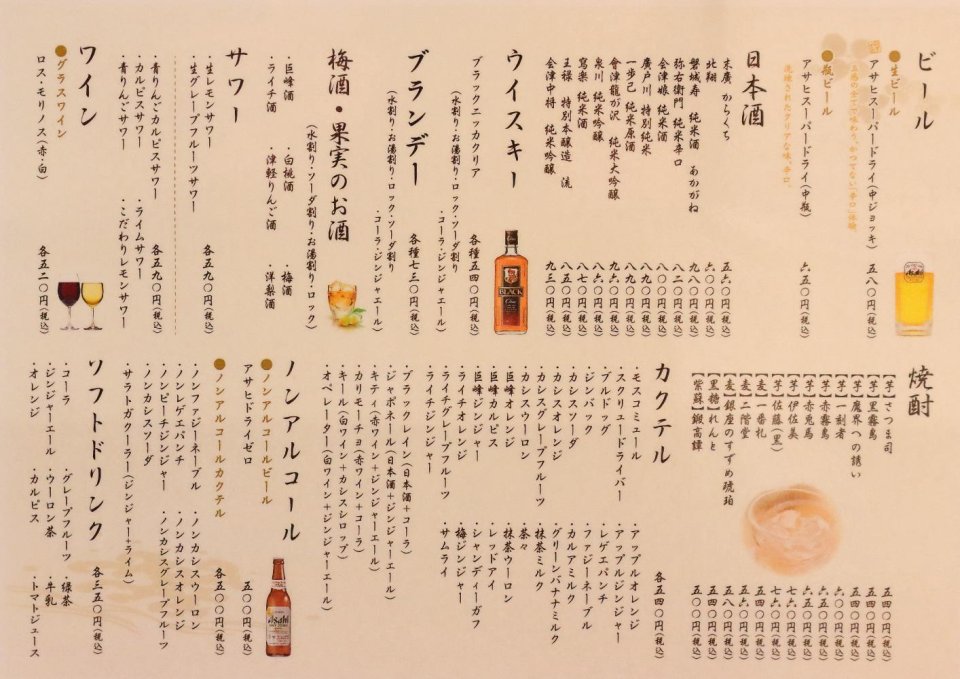 ビール
●生ビール
アサヒスーパードライ(中ジョッキ) 五八〇円(税込)
●瓶ビール
アサヒスーパードライ(中瓶) 六五〇円(税込)
洗練されたクリアな味、辛口。
日本酒
末廣 からくち 五六〇円(税込)
北翔 六〇〇円(税込)
磐城寿 純米酒 あかがね 九八〇円(税込)
弥右衛門 純米辛口 八二〇円(税込)
会津娘 純米酒 八〇〇円(税込)
廣戸川 特別純米 八九〇円(税込)
一歩己 純米原酒 九〇〇円(税込)
會津龍が沢 純米大吟醸 九〇〇円(税込)
泉川 純米吟醸 八八〇円(税込)
写楽 純米酒 八七〇円(税込)
王禄 特別本醸造 渓 八五〇円(税込)
会津中将 純米吟醸 九三〇円(税込)
ウイスキー
ブラックニッカクリア 各種五四〇円(税込)
(水割り・お湯割り・ロック・ソーダ割り
・コーラ・ジンジャエール)
ブランデー 各種七三〇円(税込)
(水割り・お湯割り・ロック・ソーダ割り
・コーラ・ジンジャエール)
梅酒・果実のお酒
(水割り・ソーダ割り・お湯割り・ロック)
・巨峰酒 ・白桃酒 ・梅酒
・ライチ酒 ・津軽りんご酒 ・洋梨酒
サワー
・生レモンサワー 各五九〇円(税込)
・生グレープフルーツサワー
・青りんごカルピスサワー 各五九〇円(税込)
・カルピスサワー ・ライムサワー
・青りんごサワー ・こだわりレモンサワー
ワイン
●グラスワイン
ロス・モリノス(赤・白) 各五二〇円(税込)
焼酎
【芋】さつま司 五四〇円(税込)
【芋】黒霧島 五四〇円(税込)
【芋】魔界への誘い 五四〇円(税込)
【芋】一刻者 五四〇円(税込)
【芋】赤霧島 六五〇円(税込)
【芋】赤兎馬 六五〇円(税込)
【芋】伊佐美 七六〇円(税込)
【芋】佐藤(黒) 七六〇円(税込)
【麦】一番札 五四〇円(税込)
【麦】二階堂 五六〇円(税込)
【麦】銀座のすずめ琥珀 五八〇円(税込)
【黒糖】れんと 五四〇円(税込)
【紫蘇】鍛高譚 五〇〇円(税込)
カクテル 各五四〇円(税込)
・モスコミュール ・アップルオレンジ
・スクリュードライバー ・アップルジンジャー
・ブルドッグ ・レゲエパンチ
・ジンバック ・ファジーネーブル
・カシスソーダ ・カルアミルク
・カシスオレンジ ・グリーンバナナミルク
・カシスグレープフルーツ ・抹茶ミルク
・カシスウーロン ・茶々
・巨峰オレンジ ・抹茶ウーロン
・巨峰カルピス ・レッドアイ
・巨峰ジンジャー ・シャンディーガフ
・ライチオレンジ ・梅ジンジャー
・ライチグレープフルーツ ・サムライ
・ライチジンジャー
・ブラックレイン(日本酒+コーラ)
・ジャポネジンジャー(日本酒+ジンジャーエール)
・キティ(赤ワイン+ジンジャーエール)
・カリモーチョ(赤ワイン+コーラ)
・キール(白ワイン+カシスシロップ)
・オペレーター(白ワイン+ジンジャーエール)
ノンアルコール
●ノンアルコールビール
アサヒドライゼロ 五〇〇円(税込)
●ノンアルコールカクテル 各五〇〇円(税込)
・ノンファジーネーブル ・ノンカシスウーロン
・ノンレゲエパンチ ・ノンカシスオレンジ
・ノンピーチジンジャー ・ノンカシスグレープフルーツ
・ノンカシスソーダ
・サラトガクーラー(ジンジャー+ライム)
ソフトドリンク 各三五〇円(税込)
・コーラ ・グレープフルーツ ・緑茶
・ジンジャーエール ・ウーロン茶 ・牛乳
・オレンジ ・カルピス ・トマトジュース
BLACK
Asahi
Asahi